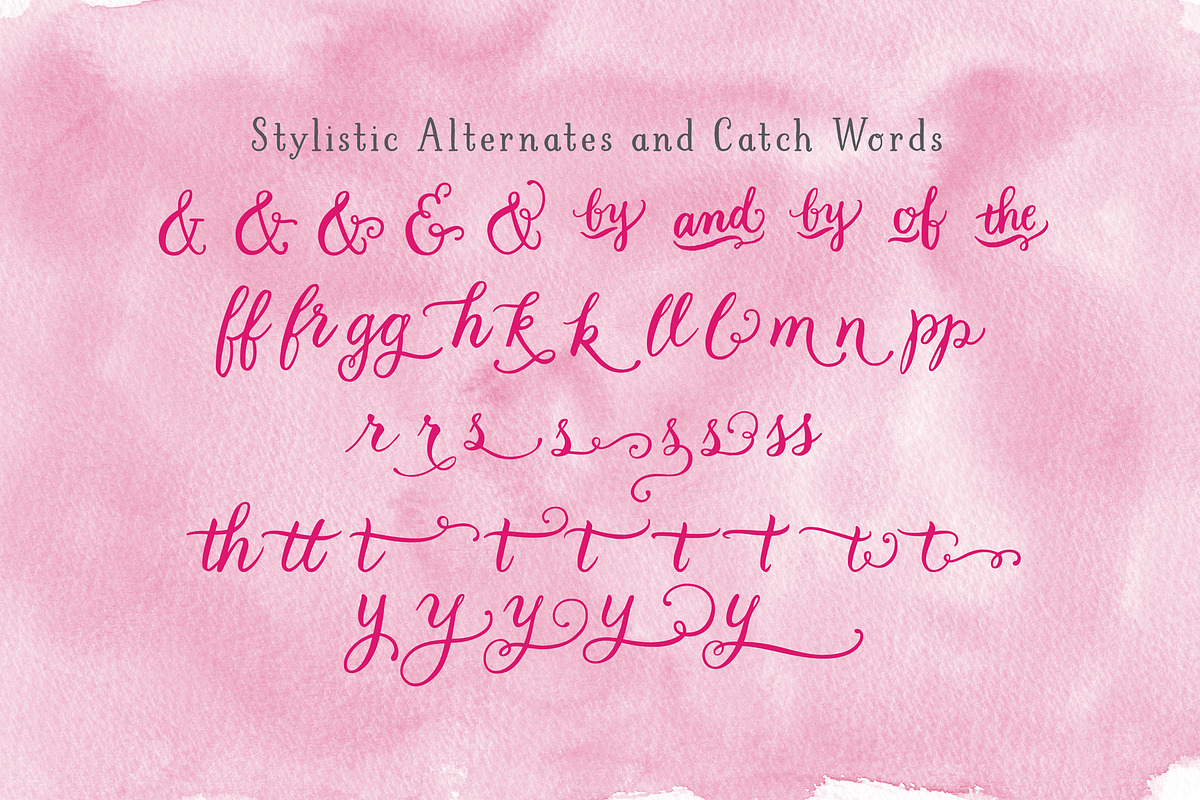 Stylistic Alternates and Catch Words
& & & & & by and by of the
ff fr gg h k k ll l m n pp
r r s s s s ss
th tt t t t t t t t
y y y y y